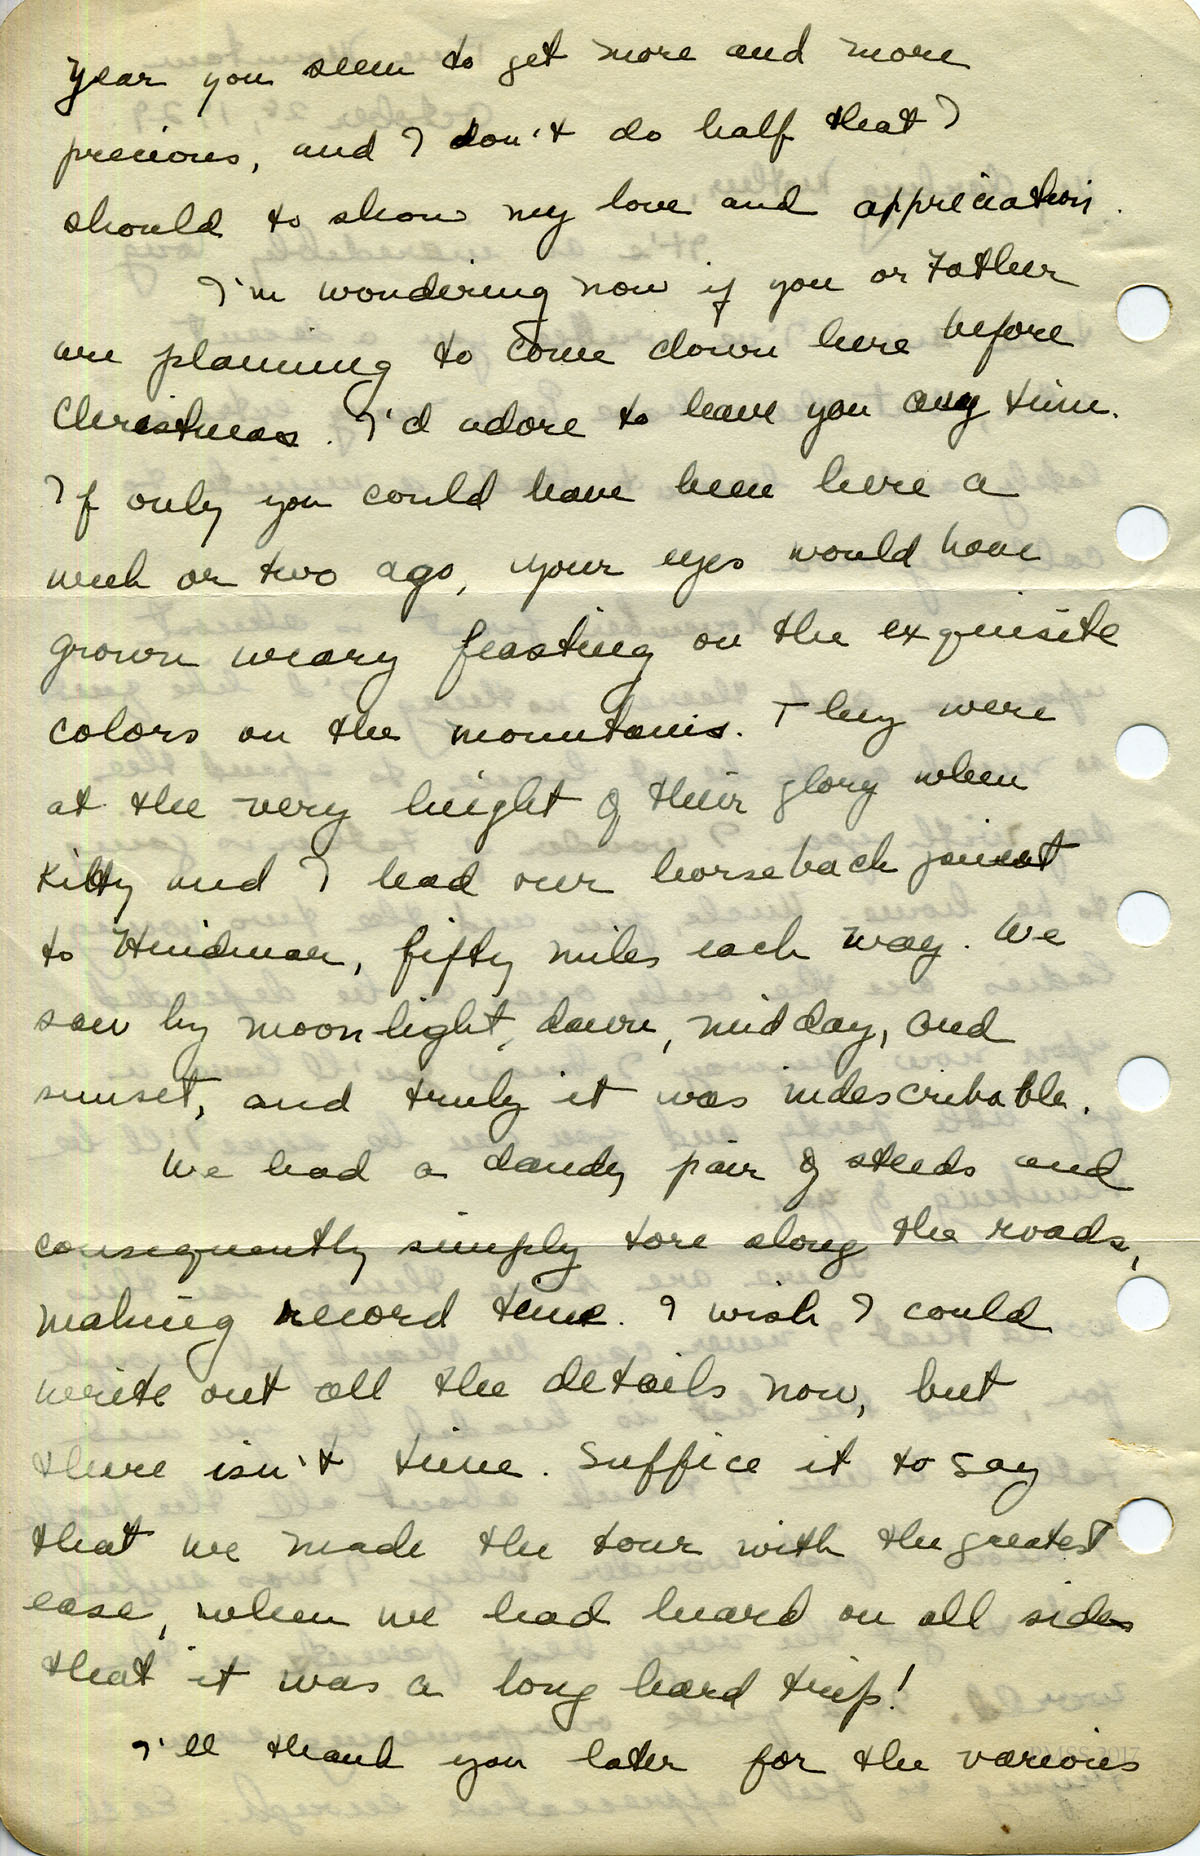 year you seem to get more and more
precious, and I don't do half that I
should to show my love and appreciation.
I'm wondering now if you or Father
are planning to come down here before
Christmas. I'd adore to have you any time.
If only you could have been here a
week or two ago, your eyes would have
grown weary feasting on the exquisite
colors on the mountains. They were
at the very height of their glory when
Kitty and I had our horseback jaunt
to Hindman, fifty miles each way. We
saw by moonlight, dawn, midday, and
sunset, and truly it was indescribable.
We had a dandy pair of steeds and
consequently simply tore along the roads,
making record time. I wish I could
write out all the details now, but
there isn't time. Suffice it to say
that we made the tour with the greatest
ease, when we had heard on all sides
that it was a long hard trip!
I'll thank you later for the various